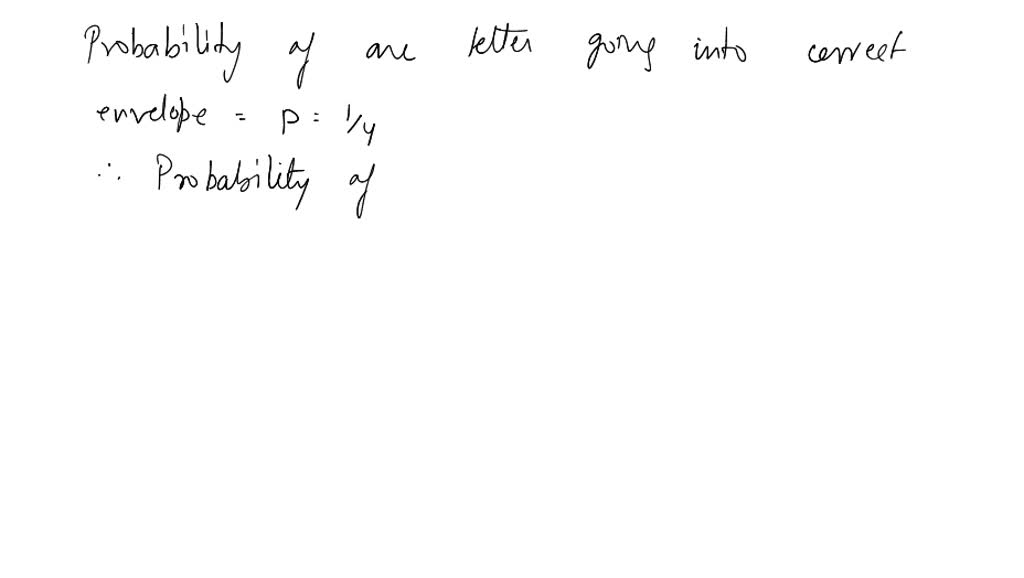 Probability of one letter going into correct
envelope = P = 1/4
∴ Probability of